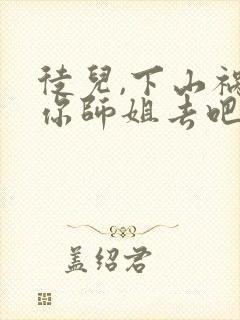 徒兒,下山禍
你師姐去吧
盖绍君